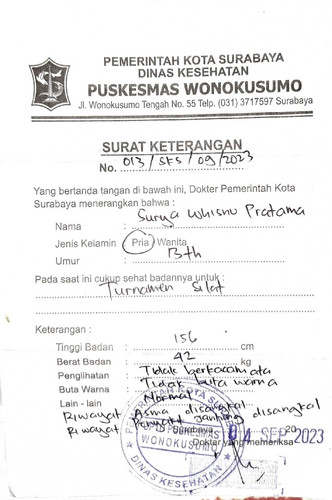 PEMERINTAH KOTA SURABAYA
DINAS KESEHATAN
PUSKESMAS WONOKUSUMO
Jl. Wonokusumo Tengah No. 55 Telp. (031) 3717597 Surabaya
SURAT KETERANGAN
No. 013/SKS/09/2023
Yang bertanda tangan di bawah ini, Dokter Pemerintah Kota
Surabaya menerangkan bahwa :
Nama : Surya Whisnu Pratama
Jenis Kelamin : Pria / Wanita
Umur : 13th
Pada saat ini cukup sehat badannya untuk :
Turnamen Silat
Keterangan :
Tinggi Badan : 156 cm
Berat Badan : 42 kg
Penglihatan : Tidak berkacamata
Buta Warna : Tidak buta warna
Lain - lain : Normal
Riwayat Asma disangkal
Riwayat Penyakit Jantung disangkal
Surabaya 20
04 SEP 2023
Dokter yang memeriksa
PUSKESMAS
WONOKUSUMO
DINAS KESEHATAN